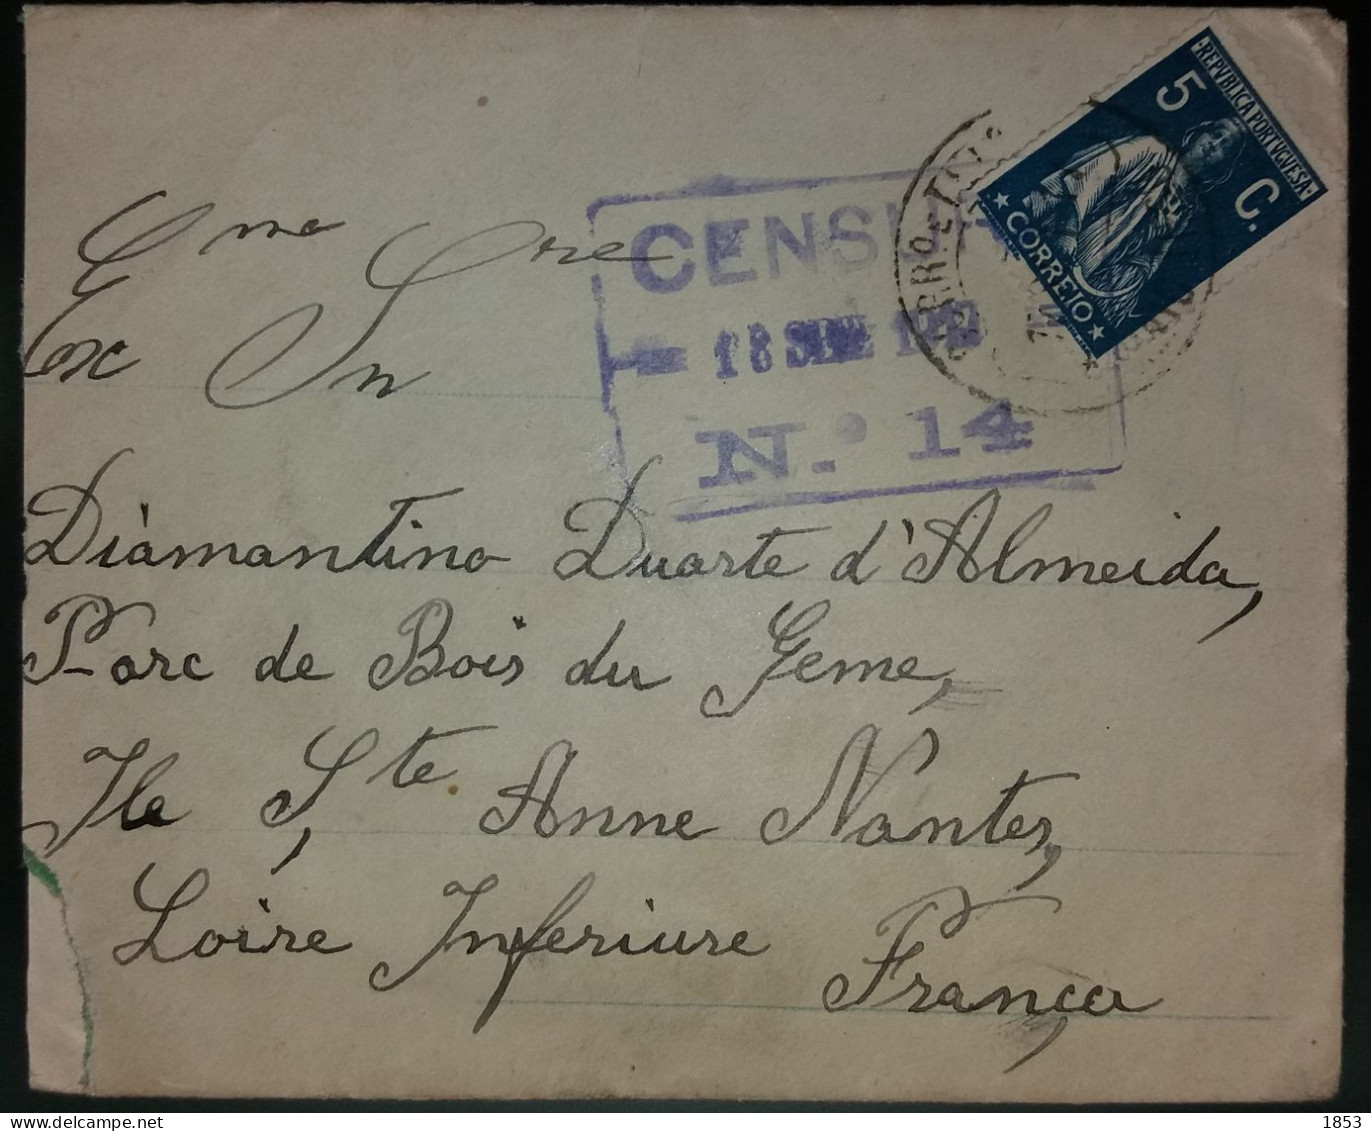 REPVBLICA PORTVGVESA
5 C.
CORREIO
CENSU
18 1917
N.º 14
Exmo Snr
Diamantino Duarte d'Almeida,
Parc de Bois du Geme,
Ile Ste Anne Nantes,
Loire Inferiure
França
1853